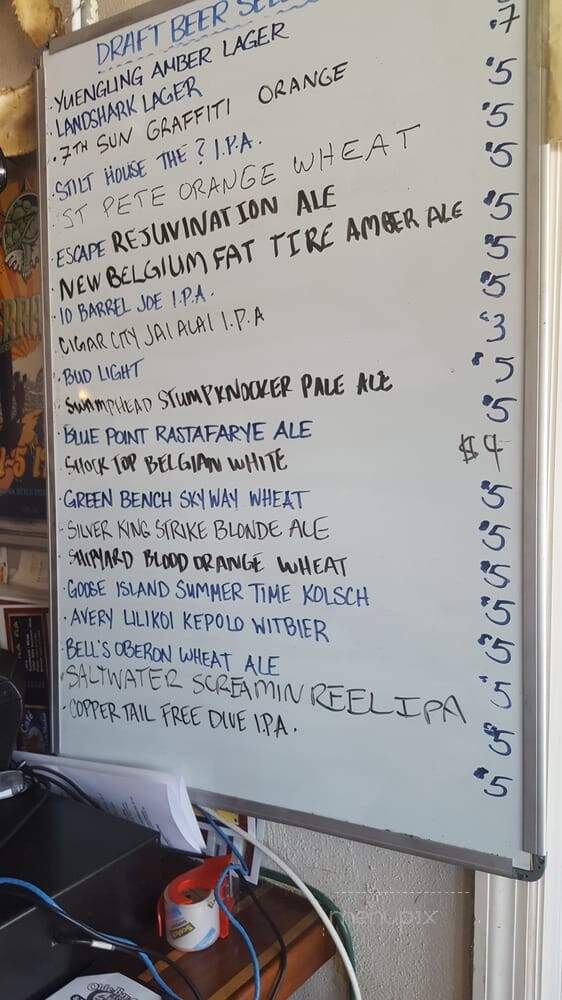 DRAFT BEER
· YUENGLING AMBER LAGER
· LANDSHARK LAGER
· 7TH SUN GRAFFITI ORANGE
· STILT HOUSE THE ? I.P.A.
· ST PETE ORANGE WHEAT
· ESCAPE REJUVINATION ALE
· NEW BELGIUM FAT TIRE AMBER ALE
· 10 BARREL JOE I.P.A.
CIGAR CITY JAI ALAI I.P.A
· BUD LIGHT
· SWAMPHEAD STUMPKNOCKER PALE ALE
· BLUE POINT RASTAFARYE ALE
SHOCK TOP BELGIAN WHITE
· GREEN BENCH SKYWAY WHEAT
· SILVER KING STRIKE BLONDE ALE
· SHIPYARD BLOOD ORANGE WHEAT
· GOOSE ISLAND SUMMER TIME KOLSCH
· AVERY LILIKOI KEPOLO WITBIER
· BELL'S OBERON WHEAT ALE
· SALTWATER SCREAMIN REEL IPA
· COPPER TAIL FREE DIVE I.P.A.
$7
$5
$5
$5
$5
$5
$5
$3
$5
$5
$4
$5
$5
$5
$5
$5
$5
$5
$5
menupix